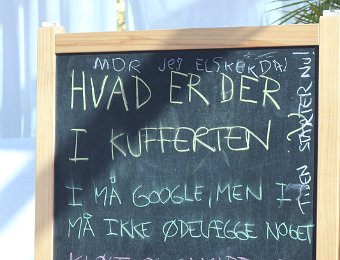 MOR JEG ELSKER DA!
HVAD ER DER
I KUFFERTEN
TIDEN STARTER NU!
I MÅ GOOGLE, MEN I
MÅ IKKE ØDELÆGGE NOGET